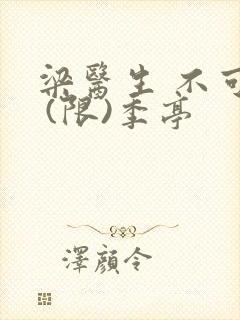 梁醫生 不可
(限)季亭
澤顏令